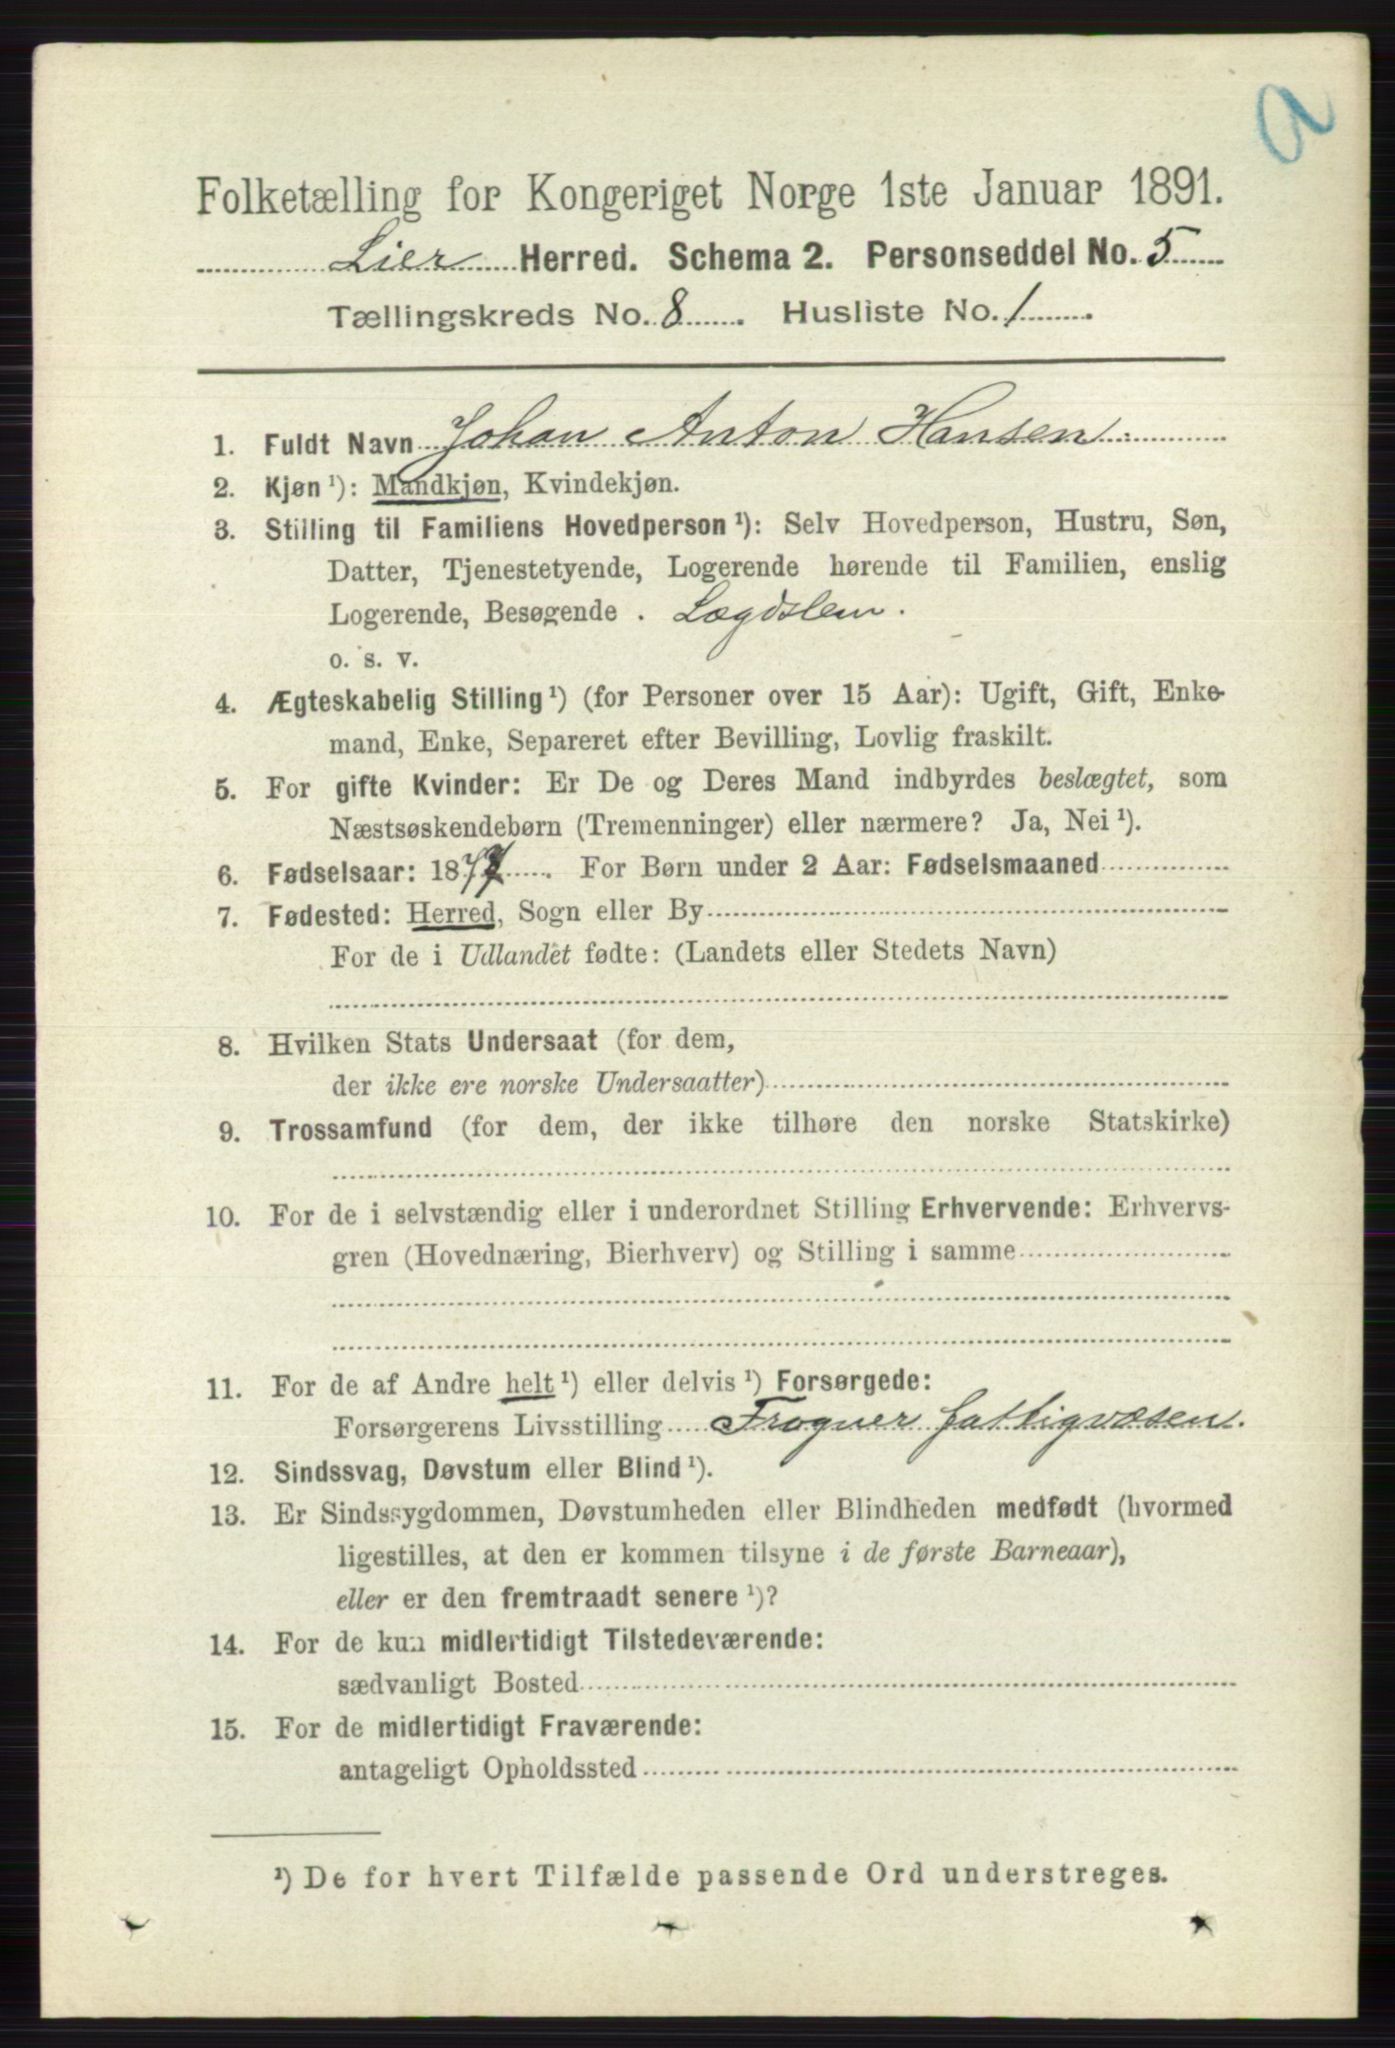 a
Folketælling for Kongeriget Norge 1ste Januar 1891.
Lier Herred. Schema 2. Personseddel No. 5
Tællingskreds No. 8. Husliste No. 1.
1. Fuldt Navn Johan Anton Hansen
2. Kjøn ¹): Mandkjøn, Kvindekjøn.
3. Stilling til Familiens Hovedperson ¹): Selv Hovedperson, Hustru, Søn,
Datter, Tjenestetyende, Logerende hørende til Familien, enslig
Logerende, Besøgende . Lægdslem.
o. s. v.
4. Ægteskabelig Stilling ¹) (for Personer over 15 Aar): Ugift, Gift, Enke-
mand, Enke, Separeret efter Bevilling, Lovlig fraskilt.
5. For gifte Kvinder: Er De og Deres Mand indbyrdes beslægtet, som
Næstsøskendebørn (Tremenninger) eller nærmere? Ja, Nei ¹).
6. Fødselsaar: 1877. For Børn under 2 Aar: Fødselsmaaned
7. Fødested: Herred, Sogn eller By
For de i Udlandet fødte: (Landets eller Stedets Navn)
8. Hvilken Stats Undersaat (for dem,
der ikke ere norske Undersaatter)
9. Trossamfund (for dem, der ikke tilhøre den norske Statskirke)
10. For de i selvstændig eller i underordnet Stilling Erhvervende: Erhvervs-
gren (Hovednæring, Bierhverv) og Stilling i samme
11. For de af Andre helt ¹) eller delvis ¹) Forsørgede:
Forsørgerens Livsstilling Frogner fattigvæsen.
12. Sindssvag, Døvstum eller Blind ¹).
13. Er Sindssygdommen, Døvstumheden eller Blindheden medfødt (hvormed
ligestilles, at den er kommen tilsyne i de første Barneaar),
eller er den fremtraadt senere ¹)?
14. For de kun midlertidigt Tilstedeværende:
sædvanligt Bosted
15. For de midlertidigt Fraværende:
antageligt Opholdssted
¹) De for hvert Tilfælde passende Ord understreges.